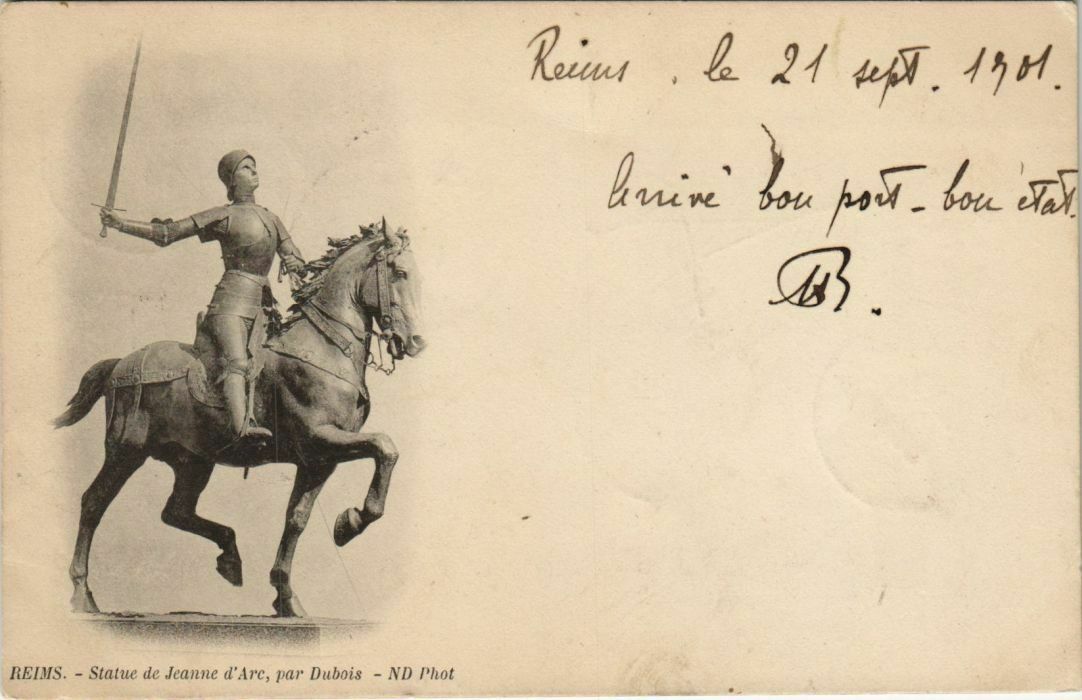 Reims, le 21 sept. 1901.
Arrivé bon port - bon état.
REIMS. - Statue de Jeanne d'Arc, par Dubois - ND Phot